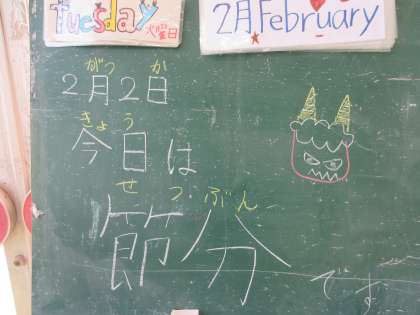 Tuesday 火曜日
2月February
がつ か
2月2日
きょう
今日は
せつぶん
節分です